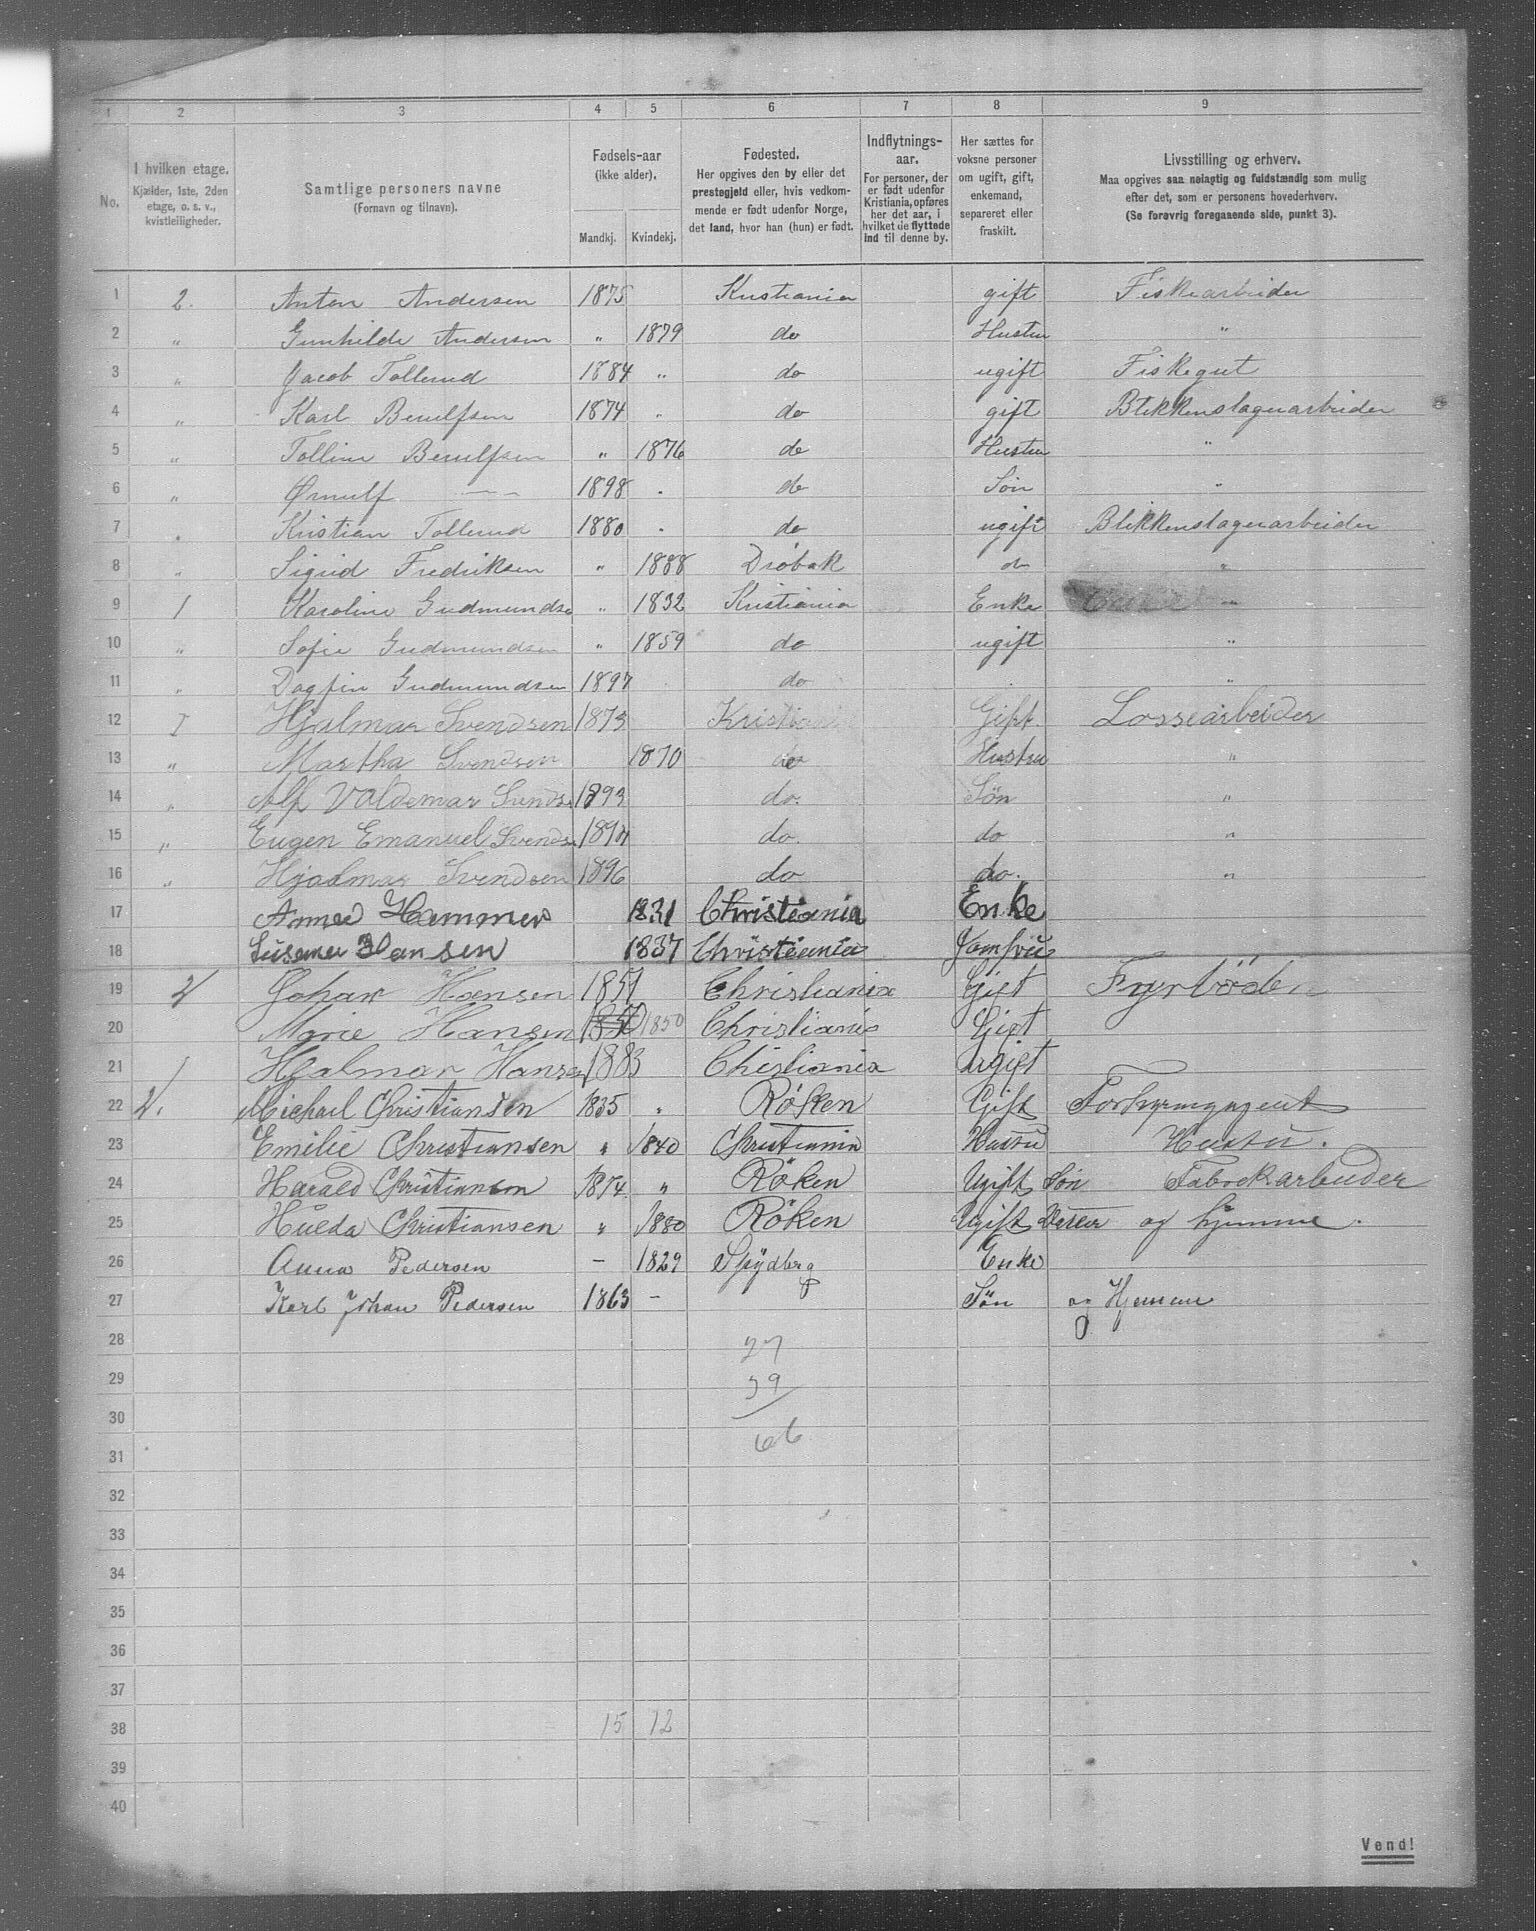 1 2 3 4 5 6 7 8 9
No.
I hvilken etage.
Kjælder, 1ste, 2den
etage, o. s. v.,
kvistleiligheder.
Samtlige personers navne
(Fornavn og tilnavn).
Fødsels-aar
(ikke alder).
Mandkj. Kvindekj.
Fødested.
Her opgives den by eller det
prestegjeld eller, hvis vedkom-
mende er født udenfor Norge,
det land, hvor han (hun) er født.
Indflytnings-
aar.
For personer, der
er født udenfor
Kristiania, opføres
her det aar, i
hvilket de flyttede
ind til denne by.
Her sættes for
voksne personer
om ugift, gift,
enkemand,
separeret eller
fraskilt.
Livsstilling og erhverv.
Maa opgives saa nøiagtig og fuldstændig som mulig
efter det, som er personens hovederhverv.
(Se forøvrig foregaaende side, punkt 3).
1 2. Anton Andersen 1875 Kristiania gift Fiskearbeider
2 " Gunhilde Andersen " 1879 do Hustru "
3 " Jacob Tollerud 1884 " do ugift Fiskegut
4 " Karl Berulfsen 1874 " do gift Blikkenslagerarbeider
5 " Tolline Berulfsen " 1876 do Hustru "
6 " Ørnulf — 1898 " do Søn "
7 " Kristian Tollerud 1880 " do ugift Blikkenslagerarbeider
8 " Sigrid Fredriksen " 1888 Drøbak do "
9 1 Karoline Gudmundsen " 1832 Kristiania Enke "
10 " Sofie Gudmundsen " 1859 do ugift "
11 " Dagfin Gudmundsen 1897 do "
12 I Hjalmar Svendsen 1873 Kristiania Gift. Lossearbeider
13 " Martha Svendsen 1870 do Hustru "
14 " Alf Valdemar Svends 1893 do. Søn "
15 " Eugen Emanuel Svends 1894 do. do "
16 " Hjalmar Svendsen 1896 do do. "
17 Hammer 1831 Christiania Enke
18 Hansen 1837 Christiania Jomfru
19 2 Johan Hansen 1851 Christiania Gift Fyrböder
20 Marie Hansen 1850 1850 Christiania Gift
21 1 Halmar Hansen 1883 Chistiania Ugift
22 2. Michael Christiansen 1835 " Røken Gift
23 Emilie Christiansen " 1840 Christiania Hustru Hustru.
24 Harald Christiansen 1874 " Røken Ugift Søn Fabrikarbeider
25 Hulda Christiansen " 1880 Røken Ugift Datter og hjemme.
26 Anna Pedersen – 1829 Spydberg Enke
27 Karl Johan Pedersen 1863 – Søn og Hjemme
28 27
29 39
30
31 66
32
33
34
35
36
37
38 15 12
39
40
Vend!